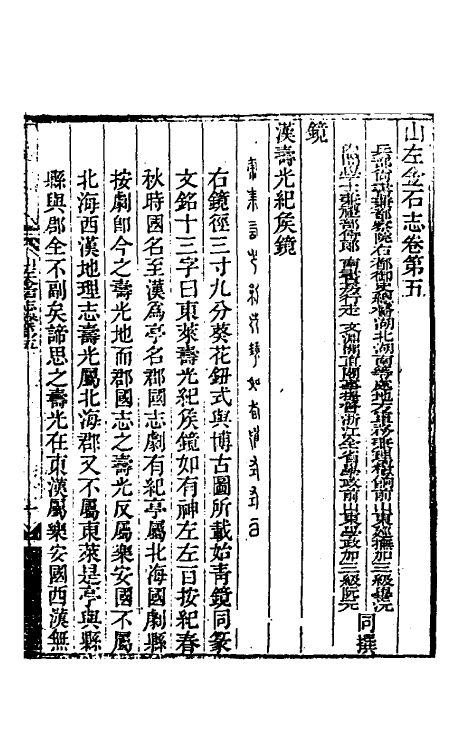 山左金石志卷第五
兵部尚書兼都察院右都御史總督湖北湖南等處地方軍務兼理糧餉前山東巡撫加三級畢沅
內閣學士兼禮部侍郎南書房行走文淵閣直閣事提督浙江全省學政前山東學政加三級阮元
同撰
鏡
漢壽光紀矦鏡
右鏡徑三寸九分葵花鈕式與博古圖所載始青鏡同篆
文銘十三字曰東萊壽光紀矦鏡如有神左左曰按紀春
秋時國名至漢爲亭名郡國志劇有紀亭屬北海國劇縣
按劇郎今之壽光地而郡國志之壽光反屬樂安國不屬
北海西漢地理志壽光屬北海郡又不屬東萊是亭與縣
縣與郡全不副矣諦思之壽光在東漢屬樂安國西漢無